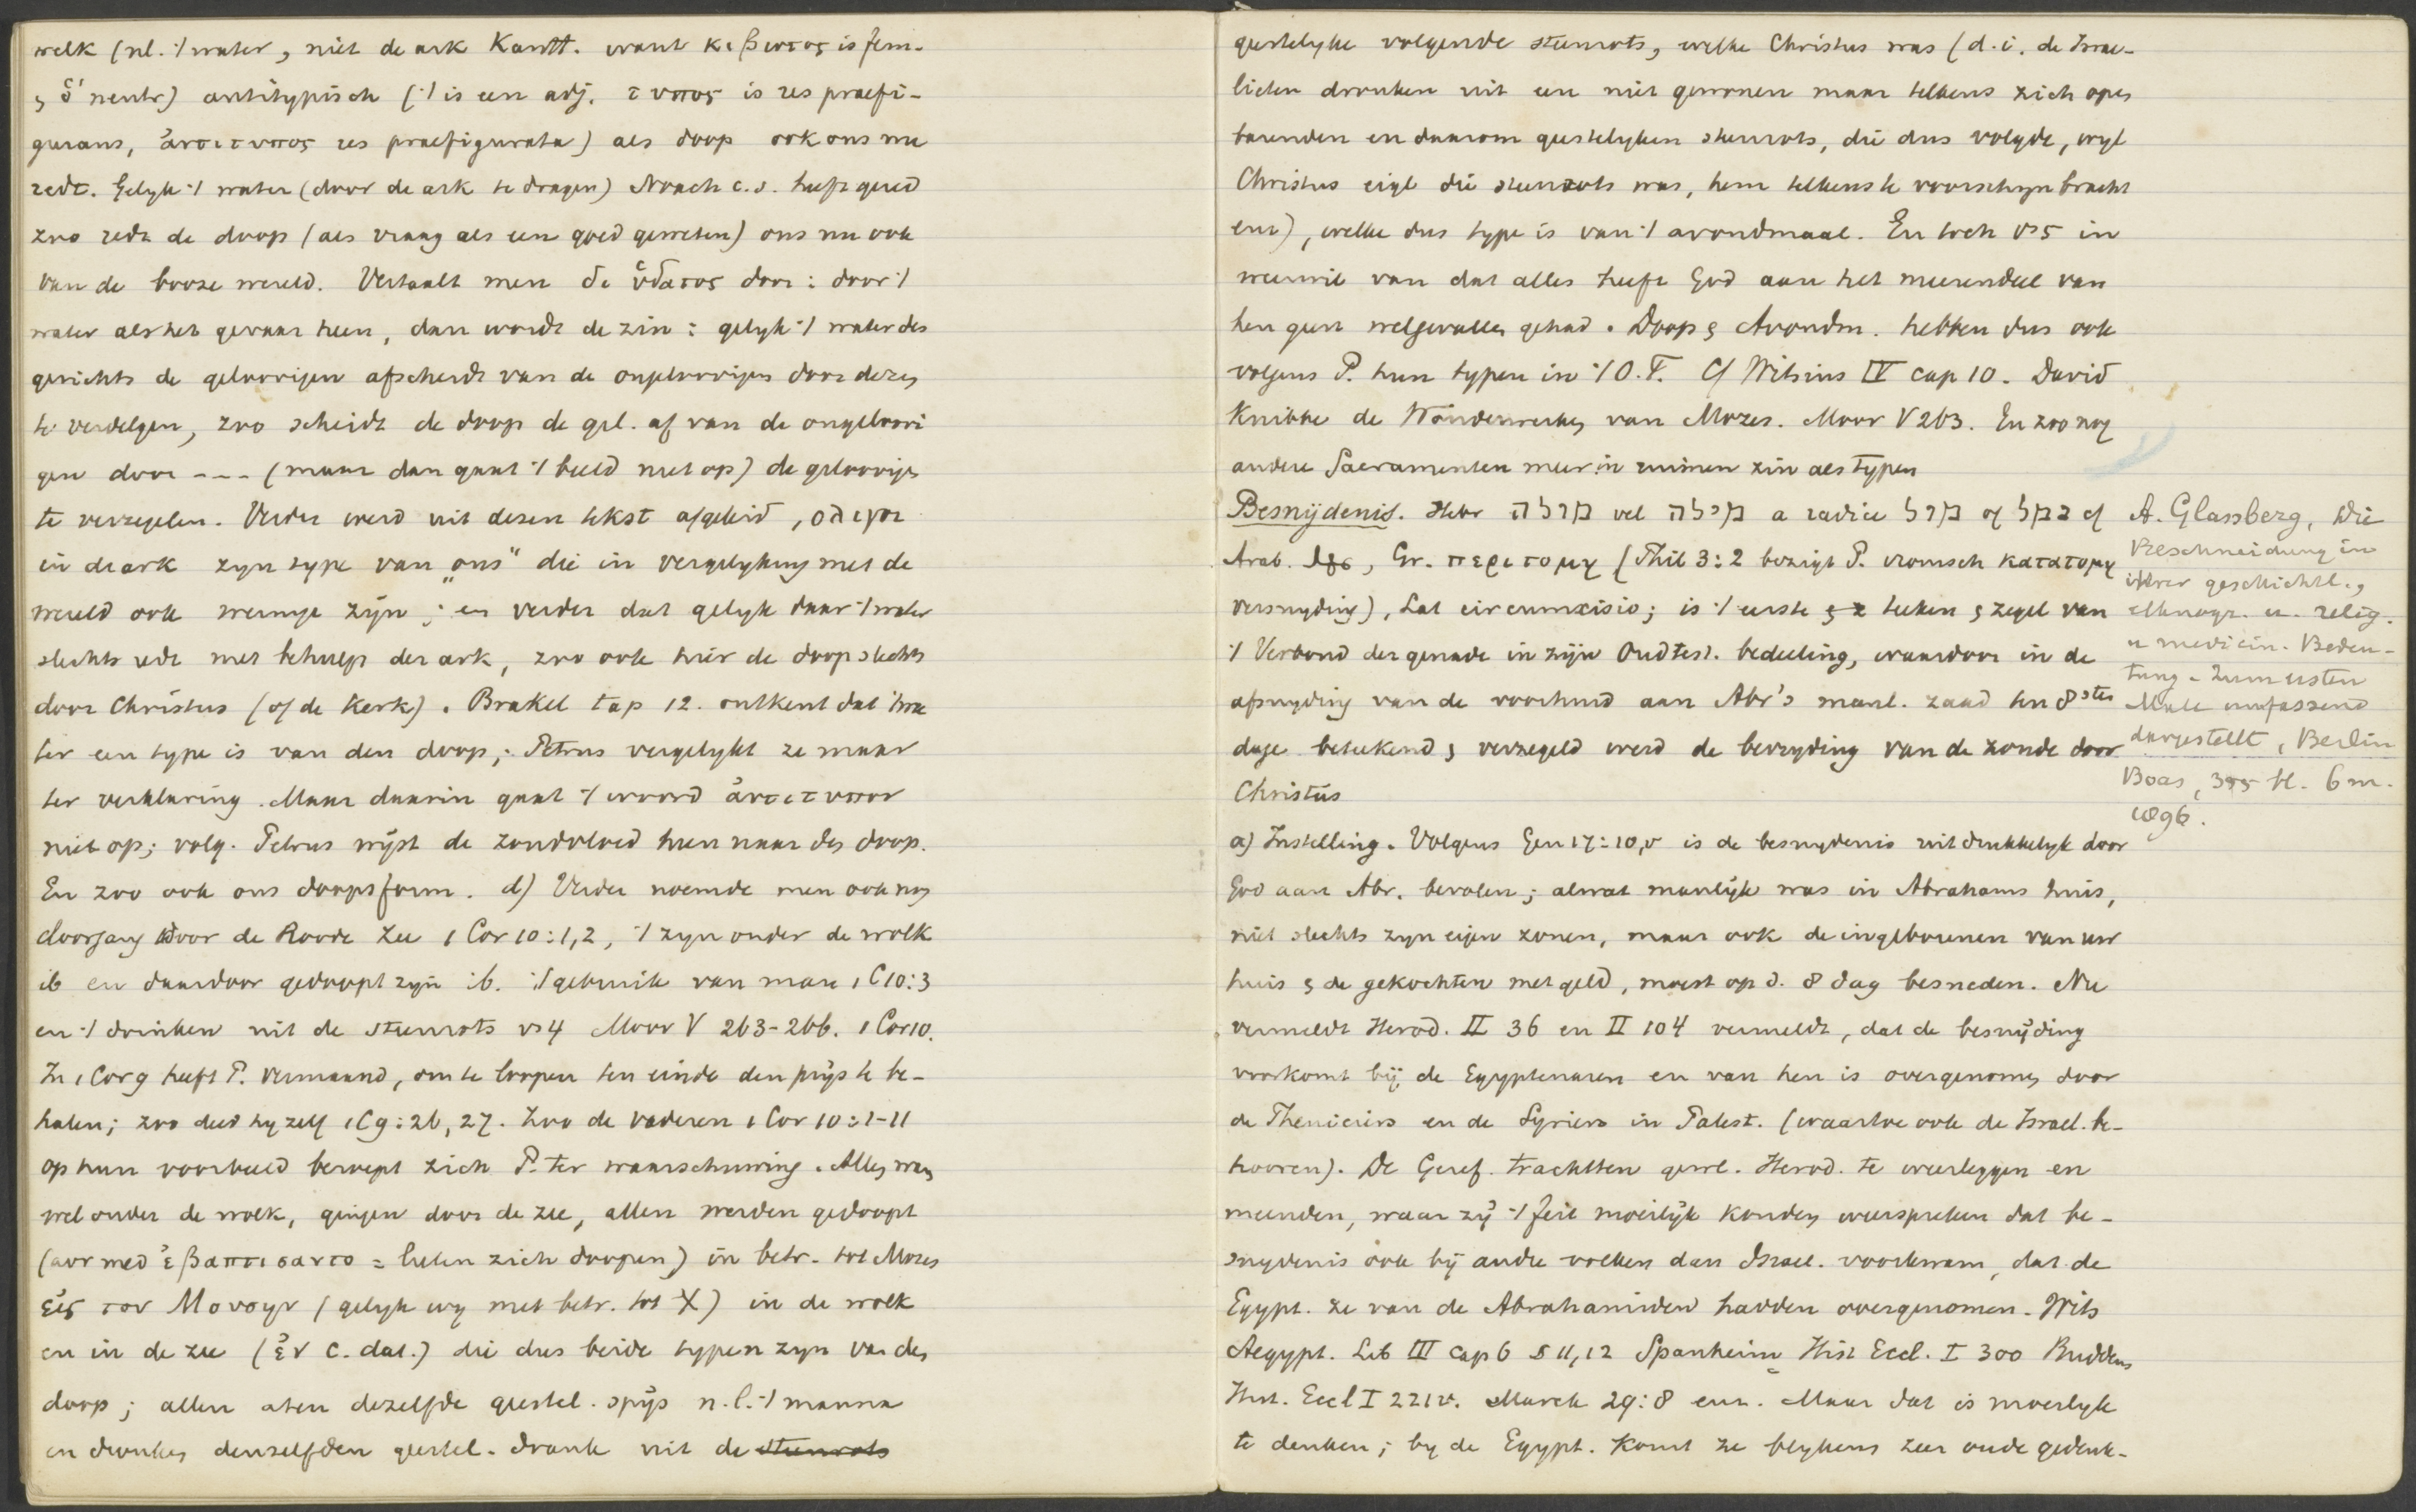 welk (nl. ’t water, niet de ark Kantt. want κιβωτος is fem.
, ὅ neutr) antitypisch (’t is een adj. τυπος is res praefi-
gurans, ἀντιτυπος res praefigurata) als doop ook ons nu
redt. Gelyk ’t water (door de ark te dragen) Noach c.s. heeft gered
zoo redt de doop (als vraag als een goed geweten) ons nu ook
van de booze wereld. Vertaalt men δι ὑδατος door: door ’t
water als het gevaar heen, dan wordt de zin: gelyk ’t water des
gerichts de geloovigen afscheidt van de ongeloovigen door dezen
te verdelgen, zoo scheidt de doop de gel. af van de ongeloovi
gen door --- (maar dan gaat ’t beeld niet op) de geloovigen
te verzegelen. Verder werd uit dezen tekst afgeleid, ολιγοι
in de ark zyn type van „ons" die in vergelyking met de
wereld ook weinige zijn; en verder dat gelyk daar ’t water
slechts redt met behulp der ark, zoo ook hier de doop slechts
door Christus (of de Kerk). Brakel cap 12. ontkent dat ’t wa
ter een type is van den doop; Petrus vergelykt ze maar
ter verklaring. Maar daarin gaat ’t woord ἀντιτυπον
niet op; volg. Petrus wijst de zondvloed heen naar den doop.
En zoo ook ons doopsform. d) Verder noemde men ook nog
doorgang door de Roode Zee 1 Cor 10:1,2, ’t zyn onder de wolk
ib en daardoor gedoopt zyn ib. ’t gebruik van man 1 C 10:3
en ’t drinken uit de steenrots vs 4 Moor V 263-266. 1 Cor 10.
In 1 Cor 9 heeft P. vermaand, om te loopen ten einde den prijs te be-
halen; zoo deed hy zelf 1 C 9:26, 27. Zoo de vaderen 1 Cor 10:1-11
op hun voorbeeld beroept zich P. ter waarschuwing. Allen waren
wel onder de wolk, gingen door de zee, allen werden gedoopt
(aor med ἐβαπτισαντο = lieten zich doopen) in betr. tot Mozes
εἰς τον Μουσην (gelyk wy met betr. tot X) in de wolk
en in de zee (ἐν c. dat.) die dus beide typen zyn van den
doop; allen aten dezelfde geestel. spijs n.l. ’t manna
en dronken denzelfden geestel. drank uit de steenrots
geestelyke volgende steenrots, welke Christus was (d.i. de Israe-
lieten dronken uit een niet gewonen maar telkens zich open
barenden en daarom geestelyken steenrots, die dus volgde, wyl
Christus eigl die steenrots was, hem telkens te voorschyn bracht
enz), welke dus type is van ’t avondmaal. En toch vs 5 in
weerwil van dat alles heeft God aan het meerendeel van
hen geen welgevallen gehad. Doop & Avondm. hebben dus ook
volgens P. hun typen in ’t O.T. Cf Witsius IV cap 10. David
Knibbe de Wonderwerken van Mozes. Moor V 263. En zoo nog
andere Sacramenten meer in ruimen zin als typen
Besnijdenis. Hebr מולה vel מילה a radice מול of נמל cf
Arab. , Gr. περιτομη (Phil 3:2 bezigt P. ironisch κατατομη
versnyding), Lat circumcisio; is ’t eerste teeken & zegel van
’t Verbond der genade in zijn Oudtest. bedeeling, waardoor in de
afsnyding van de voorhuid aan Abr's manl. zaad ten 8sten
dage beteekend & verzegeld werd de bevryding van de zonde door
Christus
A. Glassberg, Die
Beschneidung in
ihrer geschichtl.,
ethnogr. u. relig.
u medicin. Bedeu-
tung. Zum ersten
Male umfassend
dargestellt, Berlin
Boas, 355 bl. 6 m.
1896.
a) Instelling. Volgens Gen 17:10,v is de besnydenis uitdrukkelyk door
God aan Abr. bevolen; alwat manlijk was in Abrahams huis,
niet slechts zyn eigen zonen, maar ook de ingeborenen van uw
huis & de gekochten met geld, moest op d. 8 dag besneden. Nu
vermeldt Herod. II 36 en II 104 vermeldt, dat de besnijding
voorkomt bij de Egyptenaren en van hen is overgenomen door
de Pheniciers en de Syriers in Palest. (waartoe ook de Israel. be-
hooren). De Geref. trachtten gewl. Herod. te weerleggen en
meenden, waar zij ’t feit moeilijk konden weerspreken dat be-
snydenis ook bij andre volken dan Israel. voorkwam, dat de
Egypt. ze van de Abrahamieden hadden overgenomen. Wits
Aegypt. Lib III cap 6 § 11,12 Spanheim Hist Eccl. I 300 Buddeus
Hist. Eccl I 221v. Marck 29:8 enz. Maar dat is moeilyk
te denken; by de Egypt. komt ze blykens zeer oude gedenk-